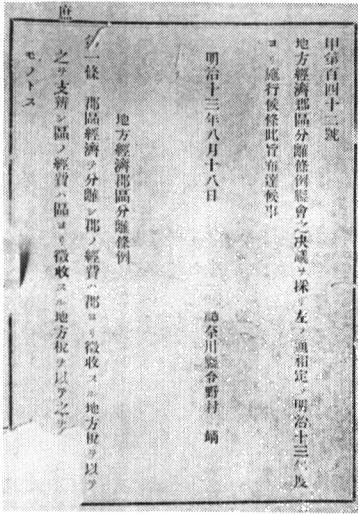 庶
甲第百四十二號
地方經濟郡區分離條例縣會之决議ヲ採リ左ノ通相定メ明治十三年度
ヨリ施行候條此旨布達候事
明治十三年八月十八日
神奈川縣令野村 靖
地方經濟郡區分離條例
第一條 郡區經濟ヲ分離シ郡ノ經費ハ郡ヨリ徴收スル地方税ヲ以テ
之ヲ支辨シ區ノ經費ハ區ヨリ徴收スル地方税ヲ以テ之ヲ
モノトス